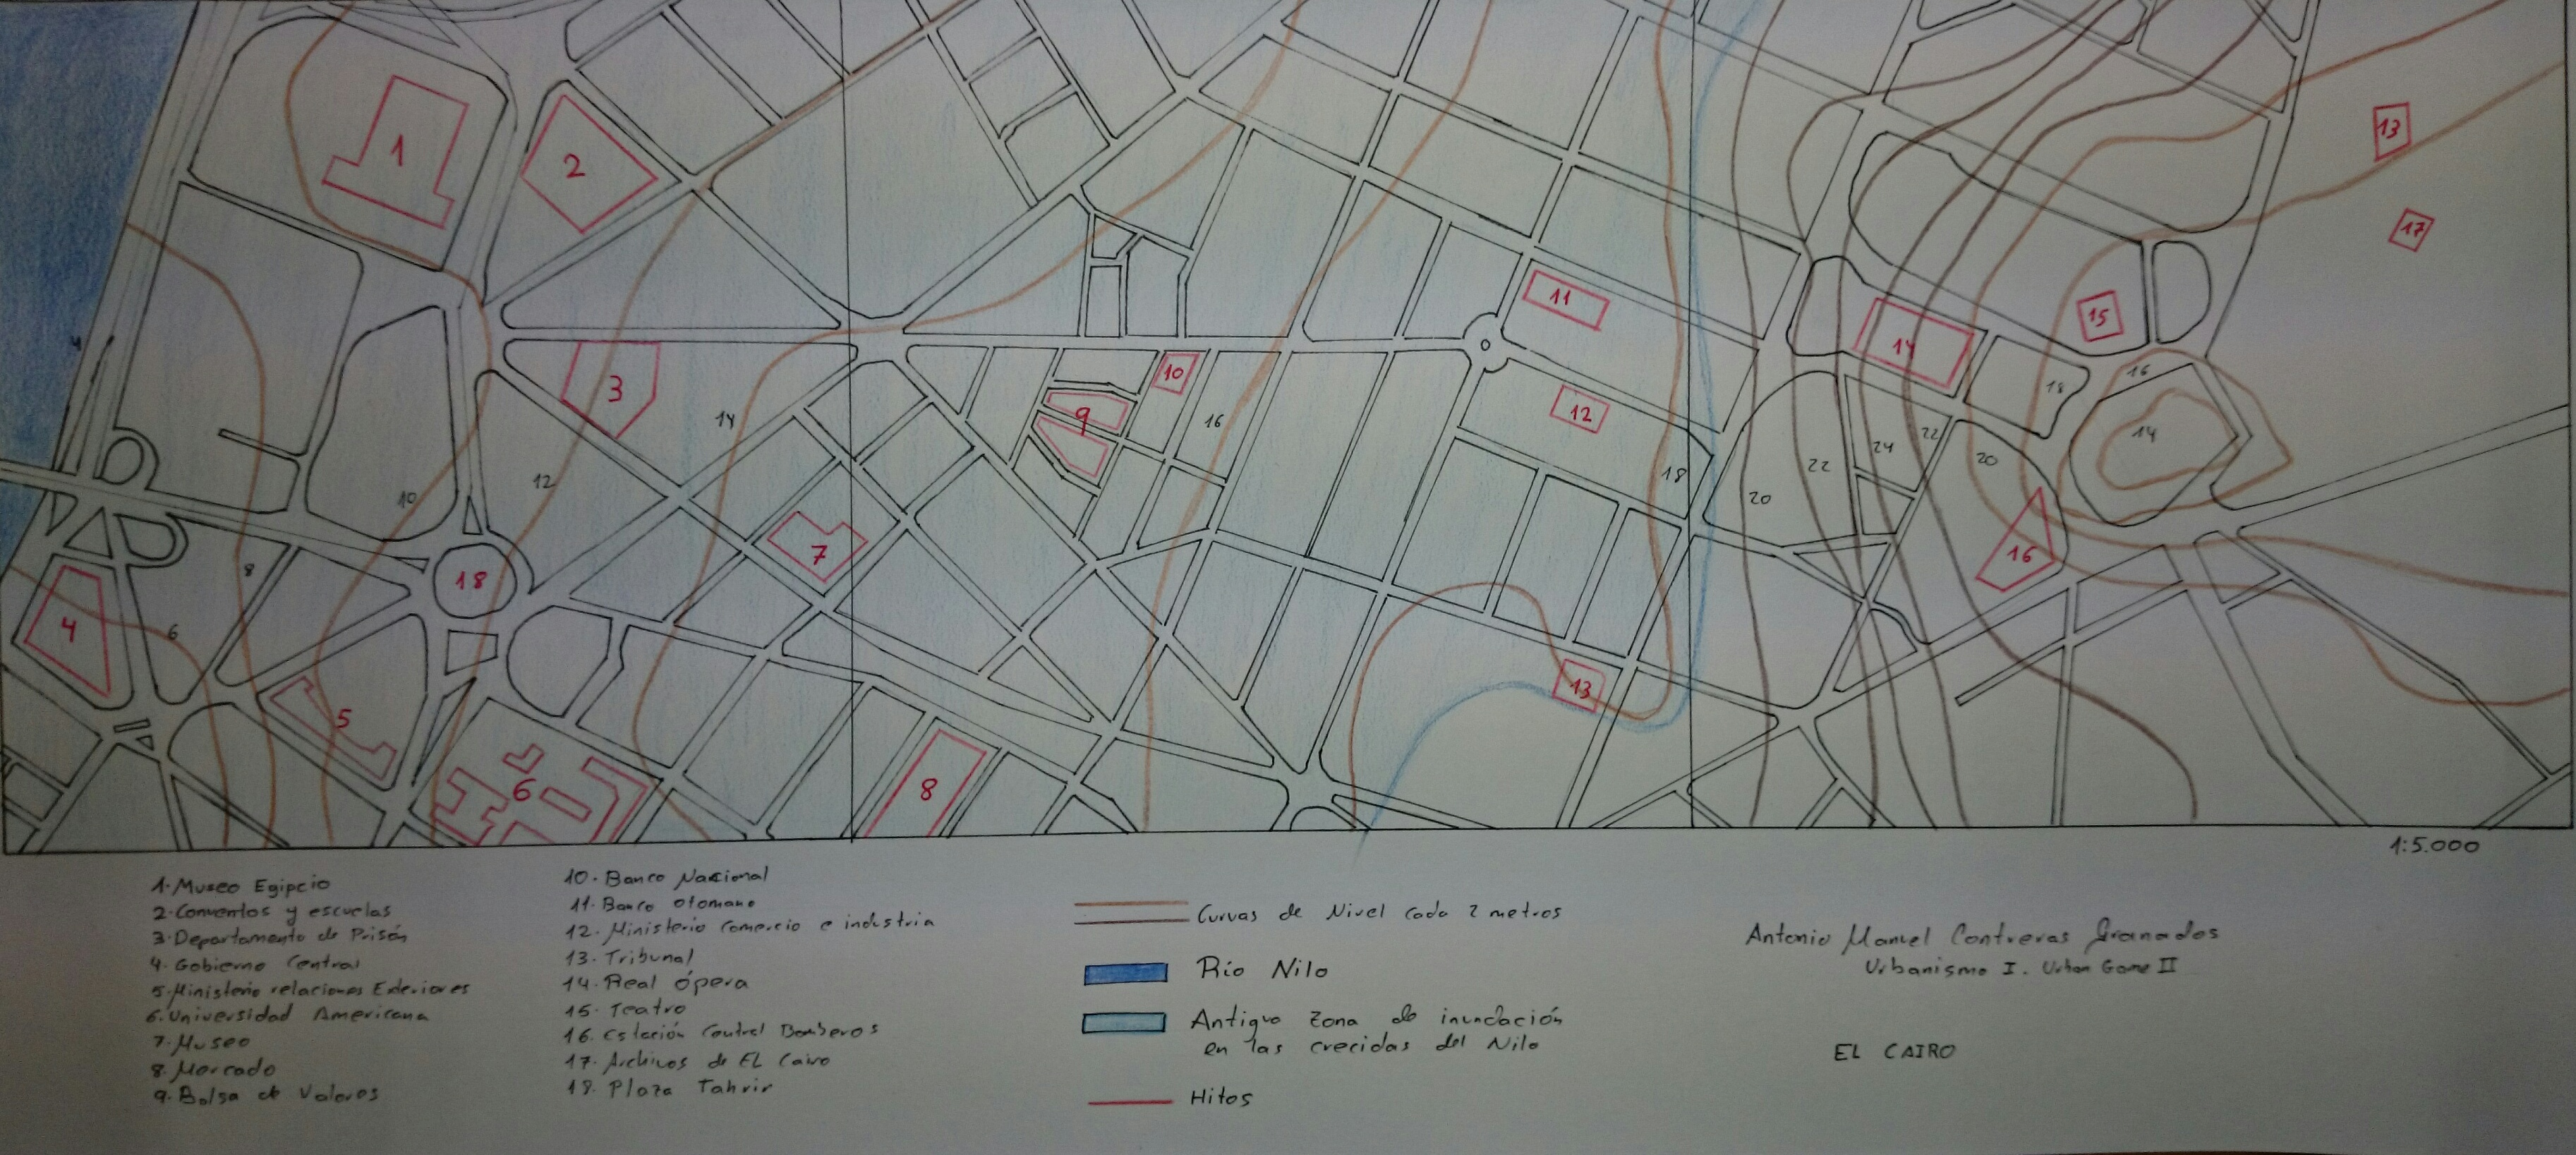 1
2
13
17
11
15
14
3
10
9
12
16
18
14
14
16
24
22
20
22
18
20
10
12
7
16
18
8
4
6
5
13
6
8
1:5.000
1. Museo Egipcio
2. Conventos y escuelas
3. Departamento de Prisón
4. Gobierno Central
5. Ministerio relaciones Exteriores
6. Universidad Americana
7. Museo
8. Mercado
9. Bolsa de Valores
10. Banco Nacional
11. Banco otomano
12. Ministerio Comercio e industria
13. Tribunal
14. Real ópera
15. Teatro
16. Estación Central Bomberos
17. Archivos de EL Cairo
18. Plaza Tahrir
Curvas de Nivel cada 2 metros
Río Nilo
Antigua zona de inundación
en las crecidas del Nilo
Hitos
Antonio Manuel Contreras Granados
Urbanismo I. Urban Game II
EL CAIRO